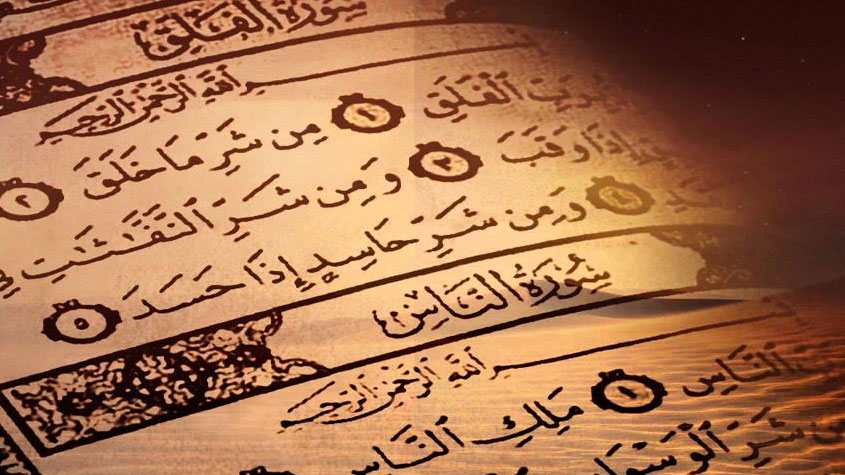 سُورَةُ الْفَلَقِ
بِسْمِ ٱللَّهِ ٱلرَّحْمَٰنِ ٱلرَّحِيمِ
بِرَبِّ ٱلْفَلَقِ ١ مِن شَرِّ مَا خَلَقَ ٢
إِذَا وَقَبَ ٣ وَمِن شَرِّ ٱلنَّفَّٰثَٰتِ فِي
٤ وَمِن شَرِّ حَاسِدٍ إِذَا حَسَدَ ٥
سُورَةُ النَّاسِ
بِسْمِ ٱللَّهِ ٱلرَّحْمَٰنِ ٱلرَّحِيمِ
ٱلنَّاسِ ١ مَلِكِ ٱلنَّاسِ
مِن شَرِّ ٱلْوَسْوَاسِ